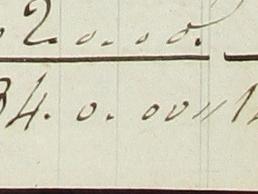 2. 0. 0. 0.
34. 0. 00 „ 1